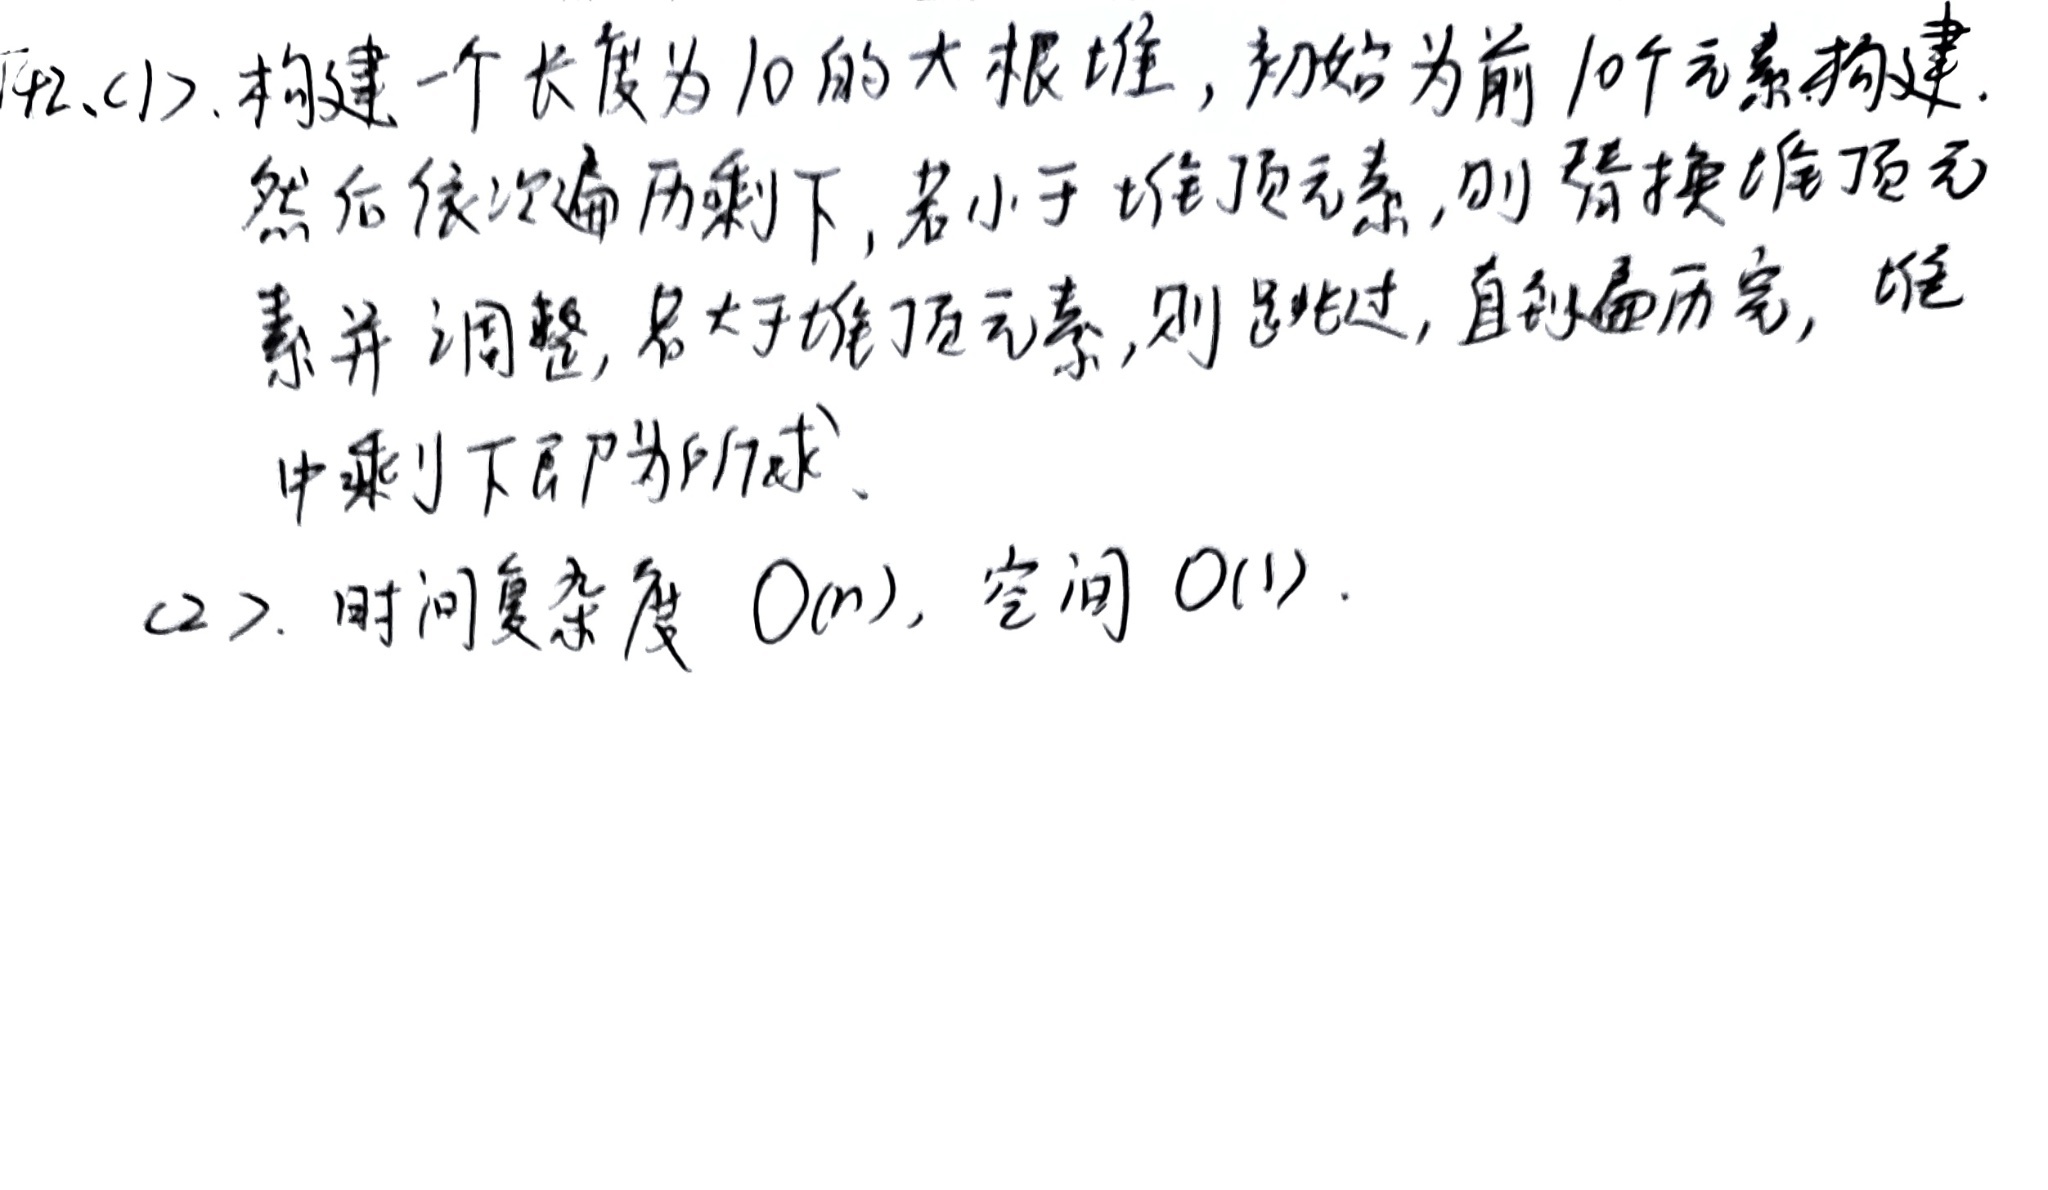 42、<1>. 构建一个长度为10的大根堆，初始为前10个元素构建.
然后依次遍历剩下，若小于堆顶元素，则替换堆顶元
素并调整，若大于堆顶元素，则跳过，直到遍历完，堆
中剩下即为所求、
<2>. 时间复杂度 O(n)，空间 O(1).